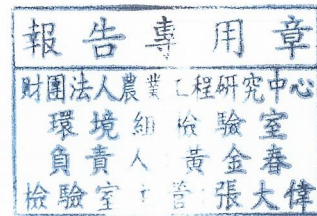 報告專用章
財團法人農業工程研究中心
環境組檢驗室
負責人 黃金春
檢驗室主管 張大偉